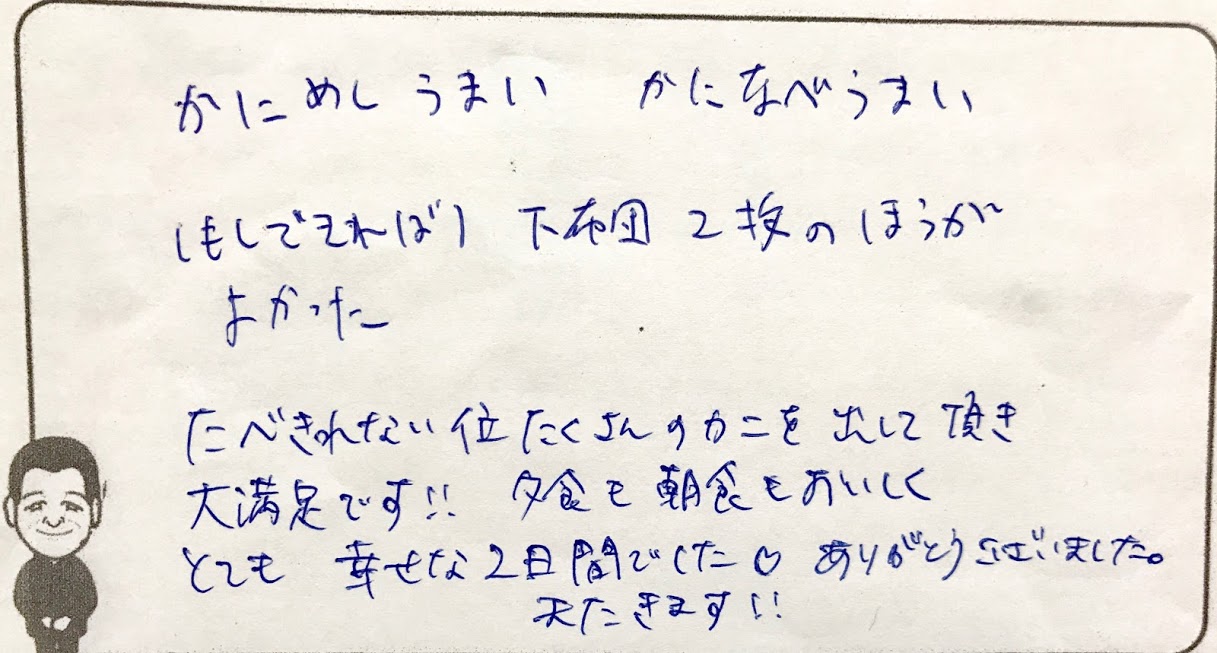 かにめしうまい かになべうまい
(もしできれば) 下布団 2枚のほうが
よかった
たべきれない位たくさんのカニを出して頂き
大満足です!! 夕食も朝食もおいしく
とても 幸せな2日間でした♡ ありがとうございました。
またきます!!